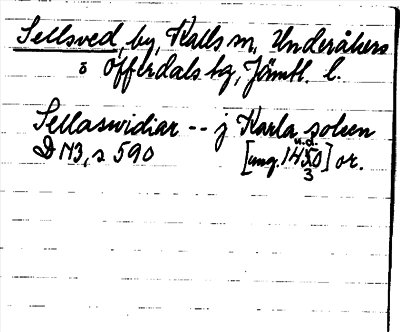 Sellsved, by, Kalls sn, Underåkers
o Offerdals tg, Jämtl. l.
Sellaswidiar -- j Karla soken
DN3, s 590 [ung. 1430] or.
u.d.
3